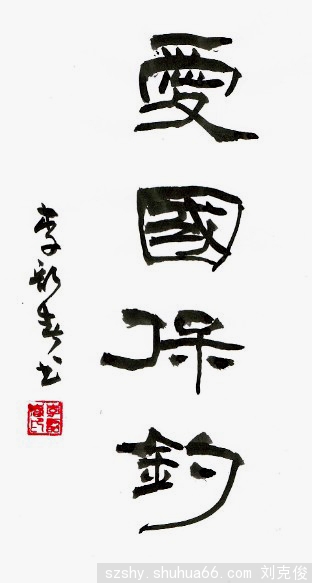 愛國保釣
李新春书
szshy.shuhua66.com 刘克俊